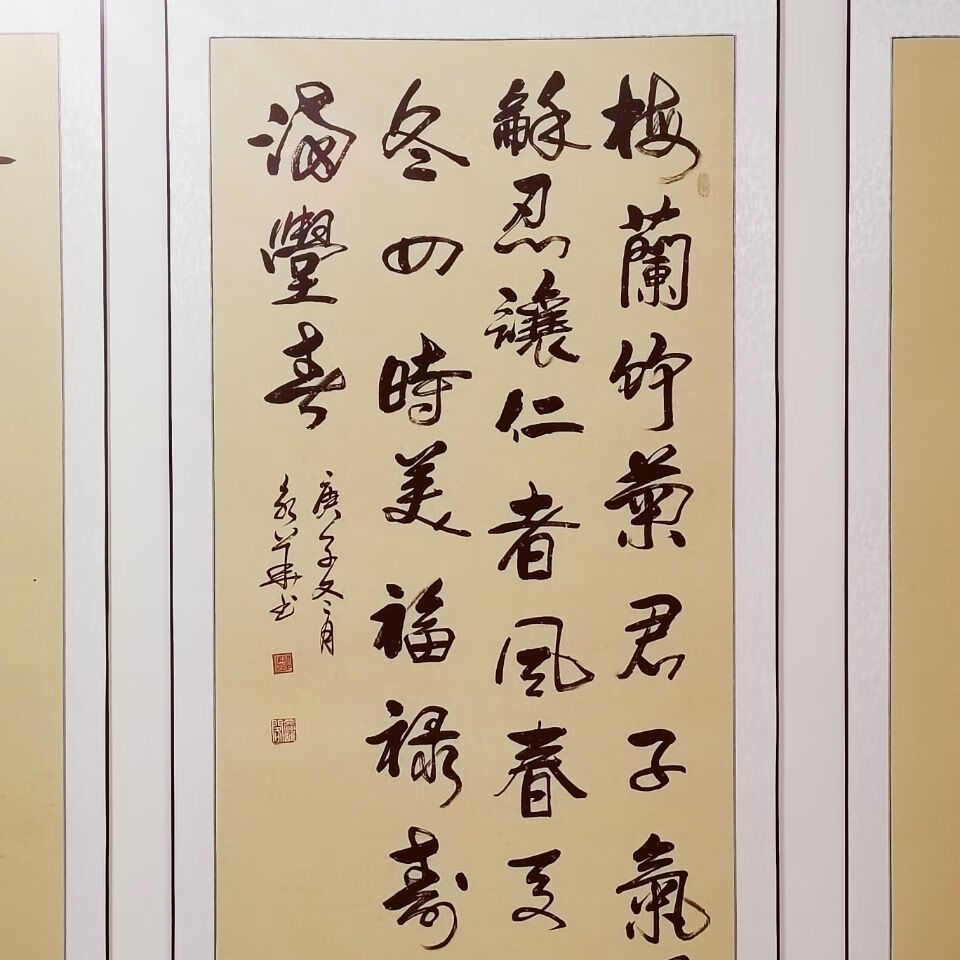 梅蘭竹菊君子氣
龢忍讓仁者風春夏
冬四時美福祿壽
滿堂春
庚子冬月
永華书